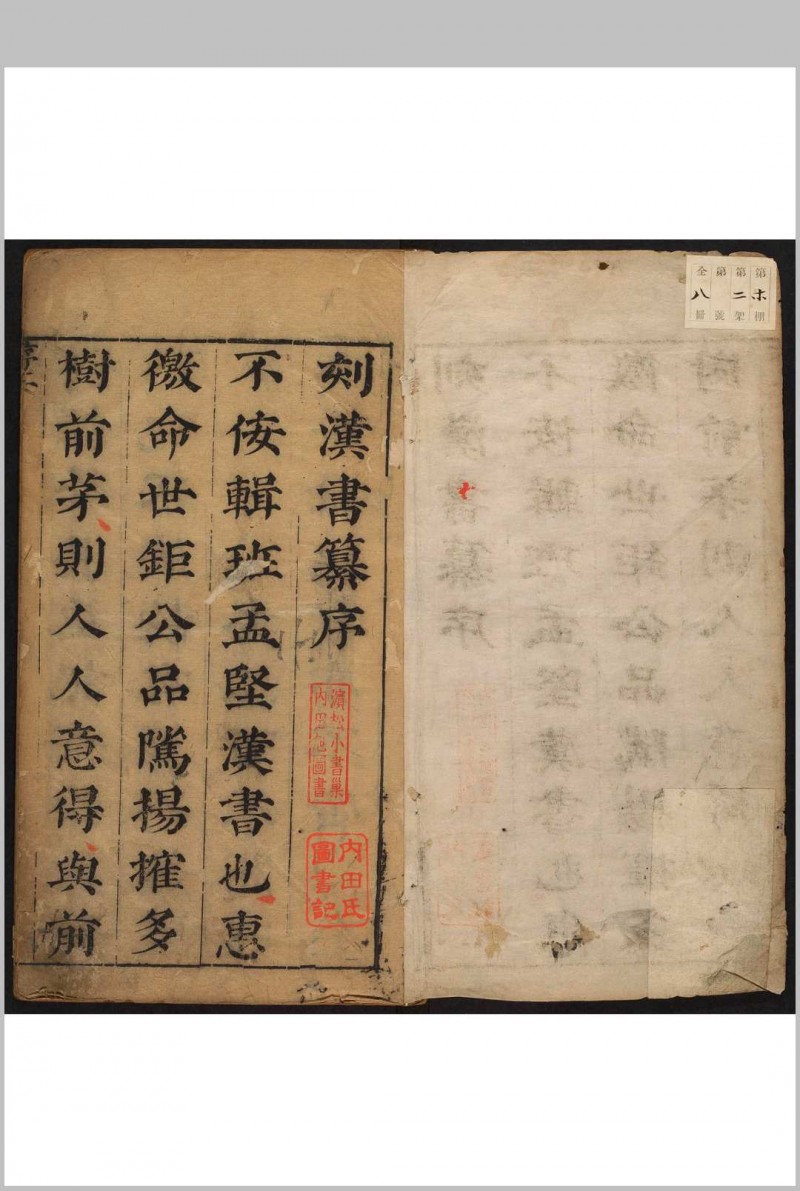 第木棚
第二架
第 號
全八冊
刻漢書纂序
不佞輯班孟堅漢書也惠
徼命世鉅公品隲揚搉多
樹前茅則人人意得與前
濱松小書巢
內田氏
圖書記